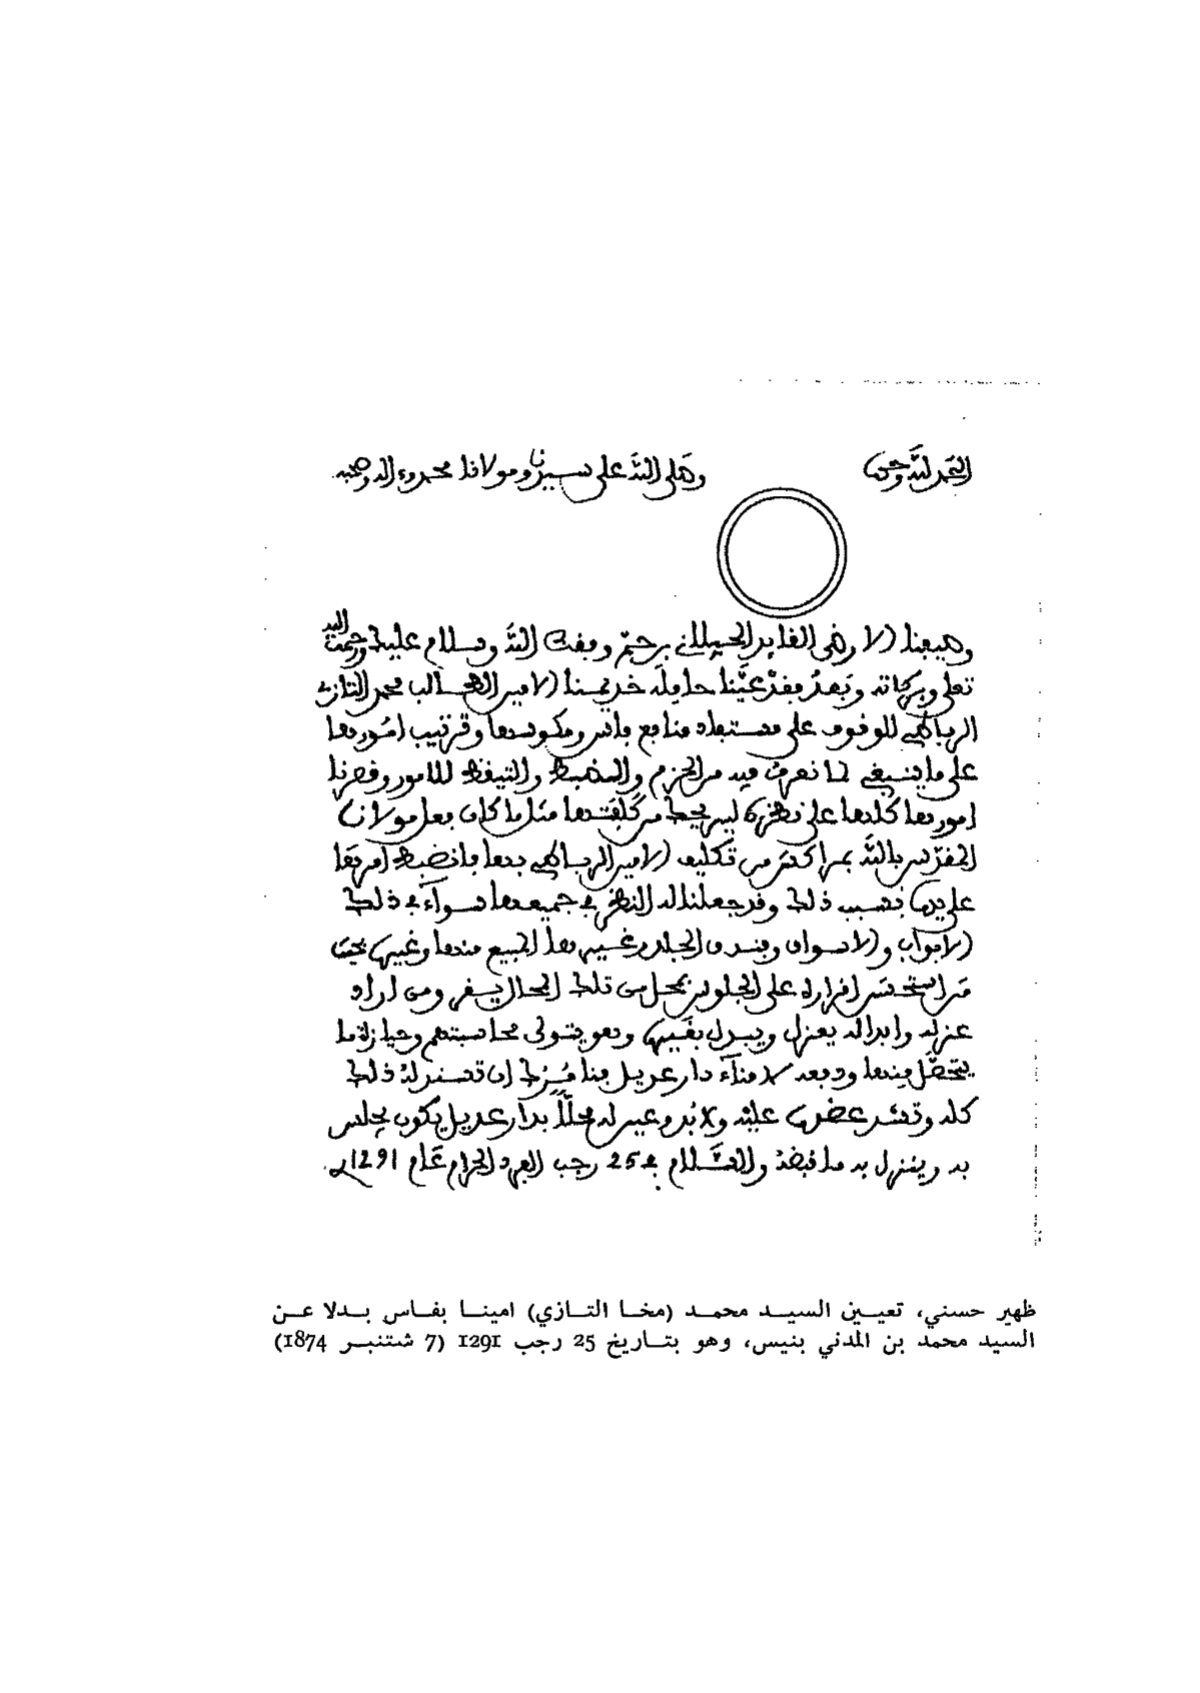 الحمد لله وحده وصلى الله على سيدنا ومولانا محمد وءاله وصحبه
وصيفنا الارضى القايد الجيلاني بن حم وفقك الله وسلام عليك ورحمت الله
تعلى وبركاته وبعد فقد عينا حامله خديمنا الامين الطالب محمد التازي
الرباطي للوقوف على مستفاد منافع فاس ومكوسها وترتيب امورها
على ما ينبغي لما نعرف فيه من الحزم والضبط والتيقظ للامور وقصرنا
امورها كلها على نظره ليريحك من كلفتها مثل ما كان فعل مولانا
المقدس بالله بمراكش من تكليف الامين الرباطي بها فانضبط امرها
على يده بسبب ذلك وقد جعلنا له النظر في جميعها سواء في ذلك
الابواب والاسواق وفندق الجلد وغيرها المبيع منها وغيره بحيث
من استحسن اقراره على الجلوس بمحل من تلك المحال يقر ومن اراد
عزله وابداله يعزل ويبدل بغيره وهو يتولى محاسبتهم وحيازة ما
يتحصل منها ودفعه لامناء دار عديل فنامرك ان تسند له ذلك
كله وتشد عضده عليه ولابد وعين له محلا بدار عديل يكون يجلس
به وينزل به ما قبضه والسلام في 25 رجب الفرد الحرام عام 1291
ظهير حسني، تعيين السيد محمد (مخا التازي) امينا بفاس بدلا عن
السيد محمد بن المدني بنيس، وهو بتاريخ 25 رجب 1291 (7 شتنبر 1874)